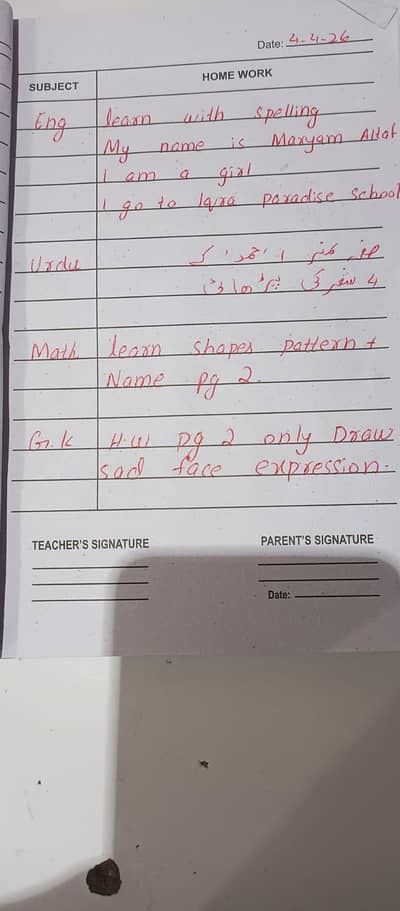 Date: 4-4-26
SUBJECT HOME WORK
Eng learn with spelling
My name is Maryam Altaf
I am a girl
I go to Iqra paradise School
Urdu صفحہ نمبر
4
Math learn shapes pattern +
Name pg 2.
G.k H.W pg 2 only Draw
sad face expression.
TEACHER'S SIGNATURE PARENT'S SIGNATURE
Date: